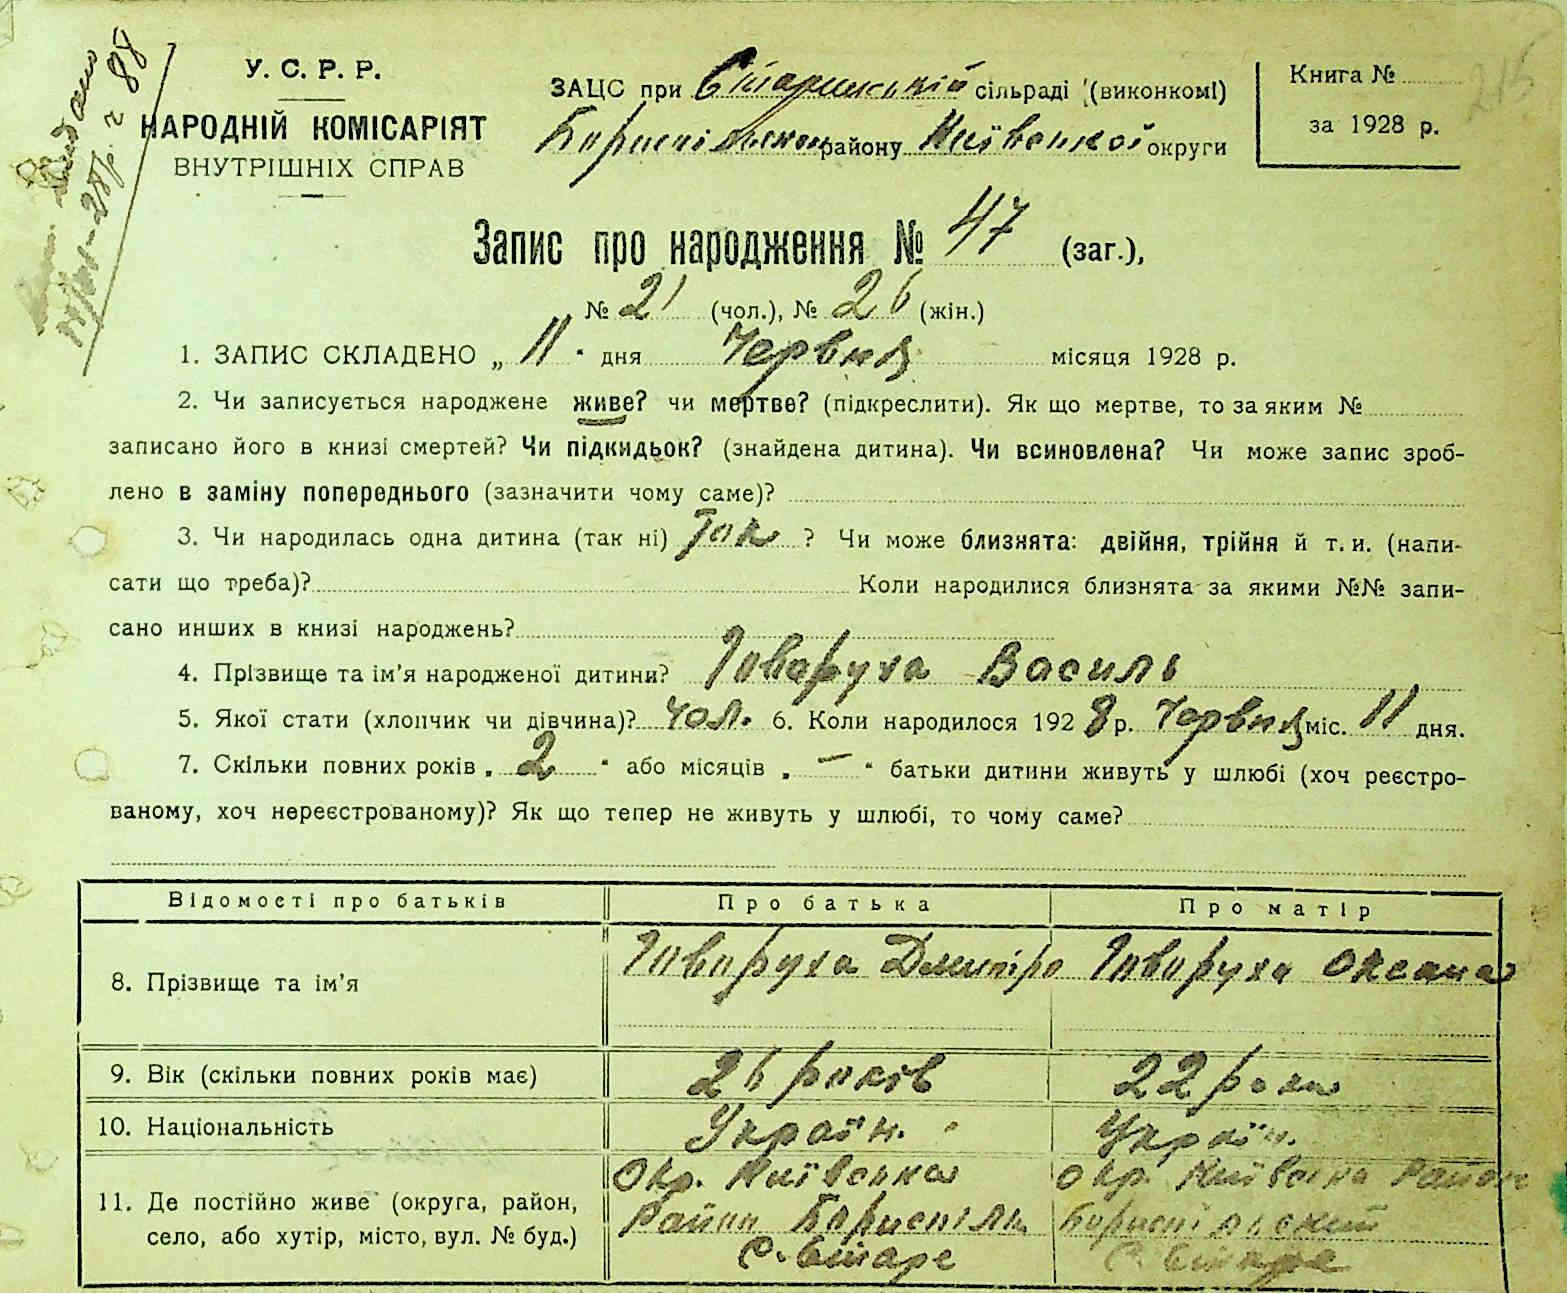 У. С. Р. Р.
НАРОДНІЙ КОМІСАРІЯТ
ВНУТРІШНІХ СПРАВ
ЗАЦС при Старинській сільраді (виконкомі)
Бориспільском району Київської округи
Книга №
за 1928 р.
Видано
Запис про народження № 47 (заг.),
№ 21 (чол.), № 26 (жін.)
1. ЗАПИС СКЛАДЕНО „ 11 " дня Червня місяця 1928 р.
2. Чи записується народжене живе? чи мертве? (підкреслити). Як що мертве, то за яким №
записано його в книзі смертей? Чи підкидьок? (знайдена дитина). Чи всиновлена? Чи може запис зроб-
лено в заміну попереднього (зазначити чому саме)?
3. Чи народилась одна дитина (так ні) Так ? Чи може близнята: двійня, трійня й т. и. (напи-
сати що треба)? Коли народилися близнята за якими №№ запи-
сано инших в книзі народжень?
4. Прізвище та ім'я народженої дитини? Говоруха Василь
5. Якої стати (хлопчик чи дівчина)? Чол. 6. Коли народилося 1928 р. Червня міс. 11 дня.
7. Скільки повних років „ 2 " або місяців „ — " батьки дитини живуть у шлюбі (хоч реєстро-
ваному, хоч нереєстрованому)? Як що тепер не живуть у шлюбі, то чому саме?
Відомості про батьків Про батька Про матір
8. Прізвище та ім'я Говоруха Дмитро Говоруха Оксана
9. Вік (скільки повних років має) 26 років 22 роки
10. Національність Україн. Україн.
11. Де постійно живе (округа, район,
село, або хутір, місто, вул. № буд.)
Окр. Київська
Район Бориспіль
С. Старе
Окр. Київська Район
Бориспільский
С. Старе